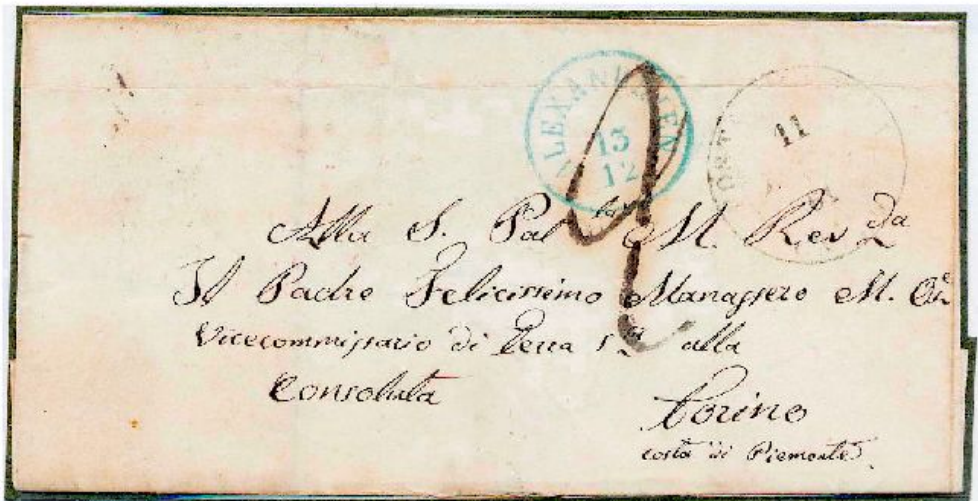 ALEXANDRIEN
13
12
11
Alla S. Pat M. Rev da
Il Padre Felicissimo Manassero M. Oe
Vicecommissario di Terra Sa alla
Consolata
Torino
costà di Piemonte.